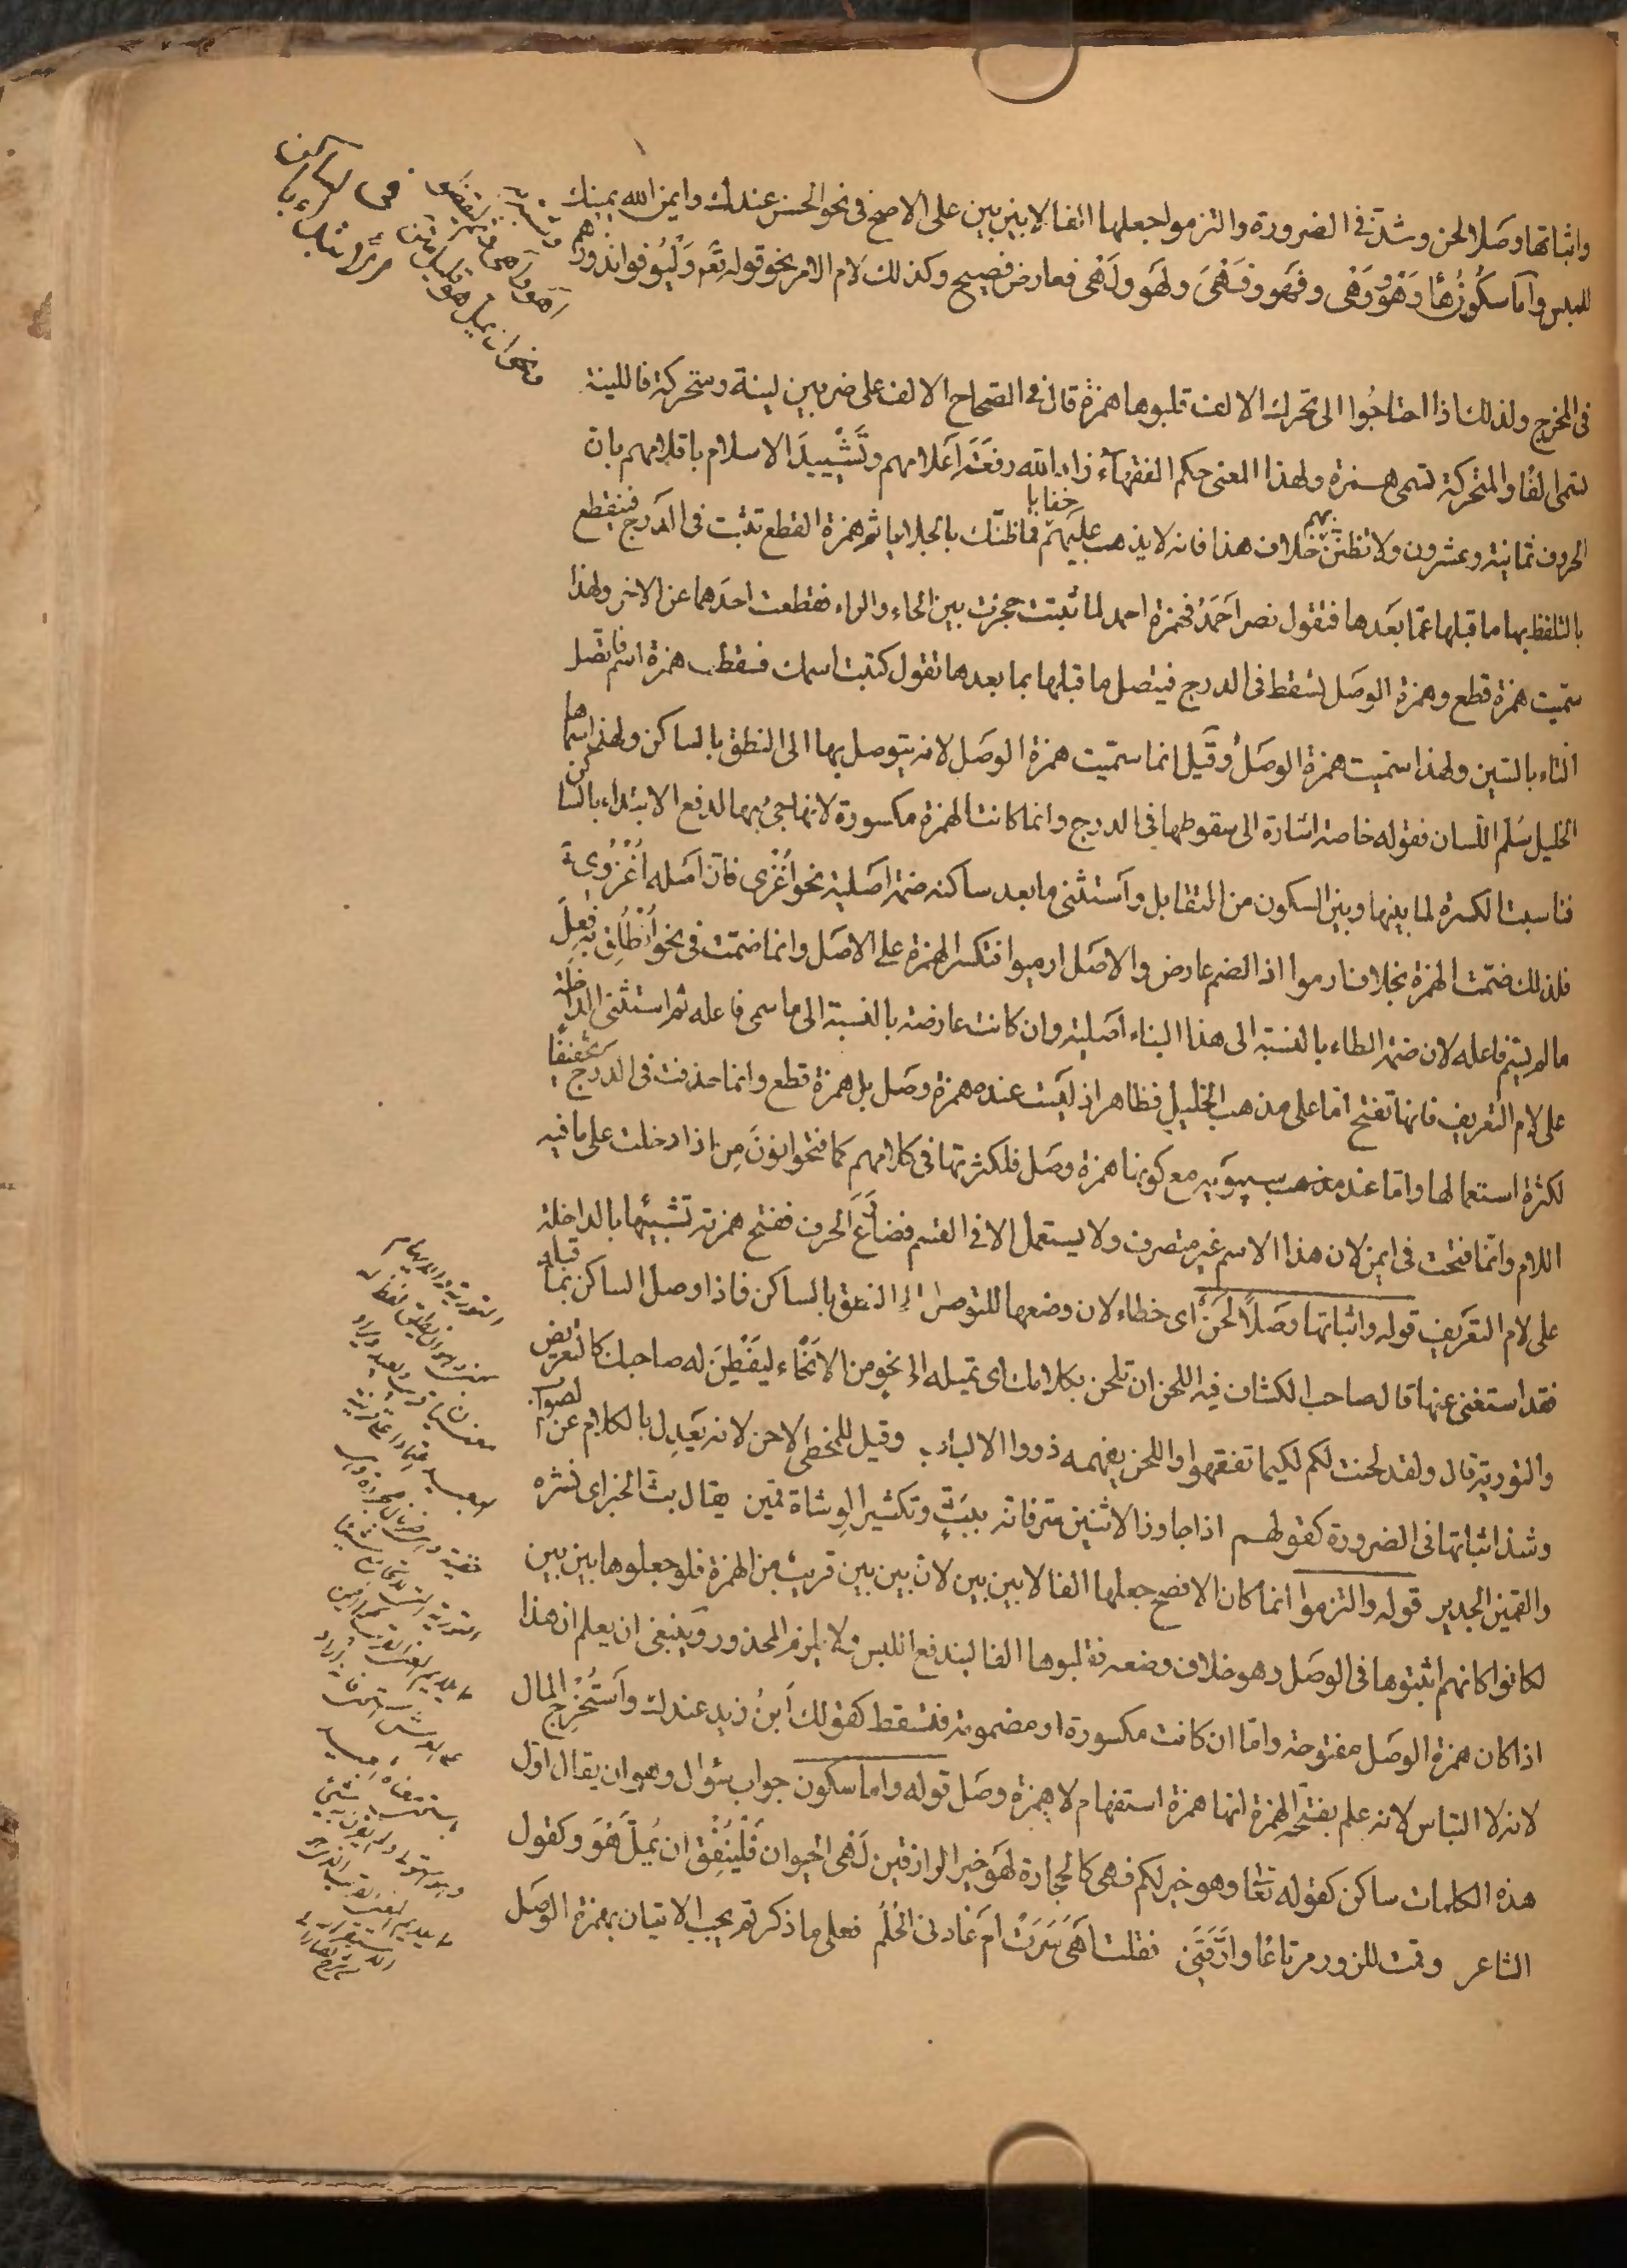 واثباتها وصلا لحن وشذ فى الضرورة والتزموا جعلها الفا لا بين بين على الاصح فى نحو الحسن عندك وايمن الله يمينك
للبس واما سكون هاء وهو وهى وفهو وفهى ولهو ولهى فعارض فصيح وكذلك لام الامر نحو قوله تع وليوفوا نذورهم
فى المخرج ولذلك اذا احتاجوا الى تحريك الالف قلبوها همزة قال فى الصحاح الالف على ضربين لينة ومتحركة فاللينة
تسمى الفا والمتحركة تسمى همزة ولهذا المعنى حكم الفقهاء زاد الله رفعة اعلامهم وتشييد الاسلام باقلامهم بان
الحروف ثمانية وعشرون ولا تظنن بهم خلاف هذا فانه لا يذهب عليهم خفايا فما ظنك بالجلايا ثم همزة القطع تثبت فى الدرج فينقطع
بالتلفظ بها ما قبلها عما بعدها فتقول نصر احمد فهمزة احمد لما ثبتت حجزت بين الحاء والراء فقطعت احدهما عن الاخر ولهذا
سميت همزة قطع وهمزة الوصل تسقط فى الدرج فيتصل ما قبلها بما بعدها تقول كتبت اسمك فسقطت همزة اسم فاتصل
التاء بالسين ولهذا سميت همزة الوصل وقيل انما سميت همزة الوصل لانه يتوصل بها الى النطق بالساكن ولهذا سماها
الخليل سلم اللسان فقوله خاصة اشارة الى سقوطها فى الدرج وانما كانت الهمزة مكسورة لانها جئ بها لدفع الابتداء بالساكن
فناسبت الكسرة لما بينها وبين السكون من التقابل واستثنى ما بعد ساكنه ضمة اصلية نحو اغزى فان اصله اغزوى
فلذلك ضمت الهمزة بخلاف ارموا اذ الضم عارض والاصل ارميوا فتكسر الهمزة على الاصل وانما ضمت فى نحو انطلق به فعل
ما لم يسم فاعله لان ضمة الطاء بالنسبة الى هذا البناء اصلية وان كانت عارضة بالنسبة الى ما سمى فاعله ثم استثنى الداخلة
على لام التعريف فانها تفتح اما على مذهب الخليل فظاهر اذ ليست عنده همزة وصل بل همزة قطع وانما حذفت فى الدرج تخفيفا
لكثرة استعمالها واما عند مذهب سيبويه مع كونها همزة وصل فلكثرتها فى كلامهم كما فتحوا نون من اذا دخلت على ما فيه
اللام وانما فتحت فى ايمن لان هذا الاسم غير متصرف ولا يستعمل الا فى القسم فضارع الحرف ففتح همزته تشبيها بالداخلة
على لام التعريف قوله واثباتها وصلا لحن اى خطاء لان وضعها للتوصل الى النطق بالساكن فاذا وصل الساكن بما قبله
فقد استغنى عنها قال صاحب الكشاف فيه اللحن ان تلحن بكلامك اى تميله الى نحو من الانحاء ليفطن له صاحبك كالتعريض
والتورية قال ولقد لحنت لكم لكيما تفقهوا واللحن يفهمه ذووا الالباب وقيل للمخطى لاحن لانه يعدل بالكلام عن الصواب
وشذ اثباتها فى الضرورة كقولهم اذا جاوز الاثنين سر فانه ببث وتكثير الوشاة قمين يقال بث الخبر اى نشره
والقمين الجدير قوله والتزموا انما كان الافصح جعلها الفا لا بين بين لان بين بين قريب من الهمزة فلو جعلوها بين بين
لكانوا كانهم اثبتوها فى الوصل وهو خلاف وضعه فقلبوها الفا ليندفع اللبس ولا يلزم المحذور وينبغى ان يعلم ان هذا
اذا كان همزة الوصل مفتوحة واما ان كانت مكسورة او مضمومة فتسقط كقولك ابن زيد عندك واستخرج المال
لانه لا التباس لانه علم بفتحة الهمزة انها همزة استفهام لا همزة وصل قوله واما سكون جواب سؤال وهو ان يقال اول
هذه الكلمات ساكن كقوله تعا وهو خير لكم فهى كالحجارة لهو خير الرازقين لهى الحيوان فلينفق ان يمل هو وكقول
الشاعر وقمت للزور مرتاعا وارقنى فقلت اهى سرت ام عادنى الحلم فعلى ما ذكرتم يجب الاتيان بهمزة الوصل